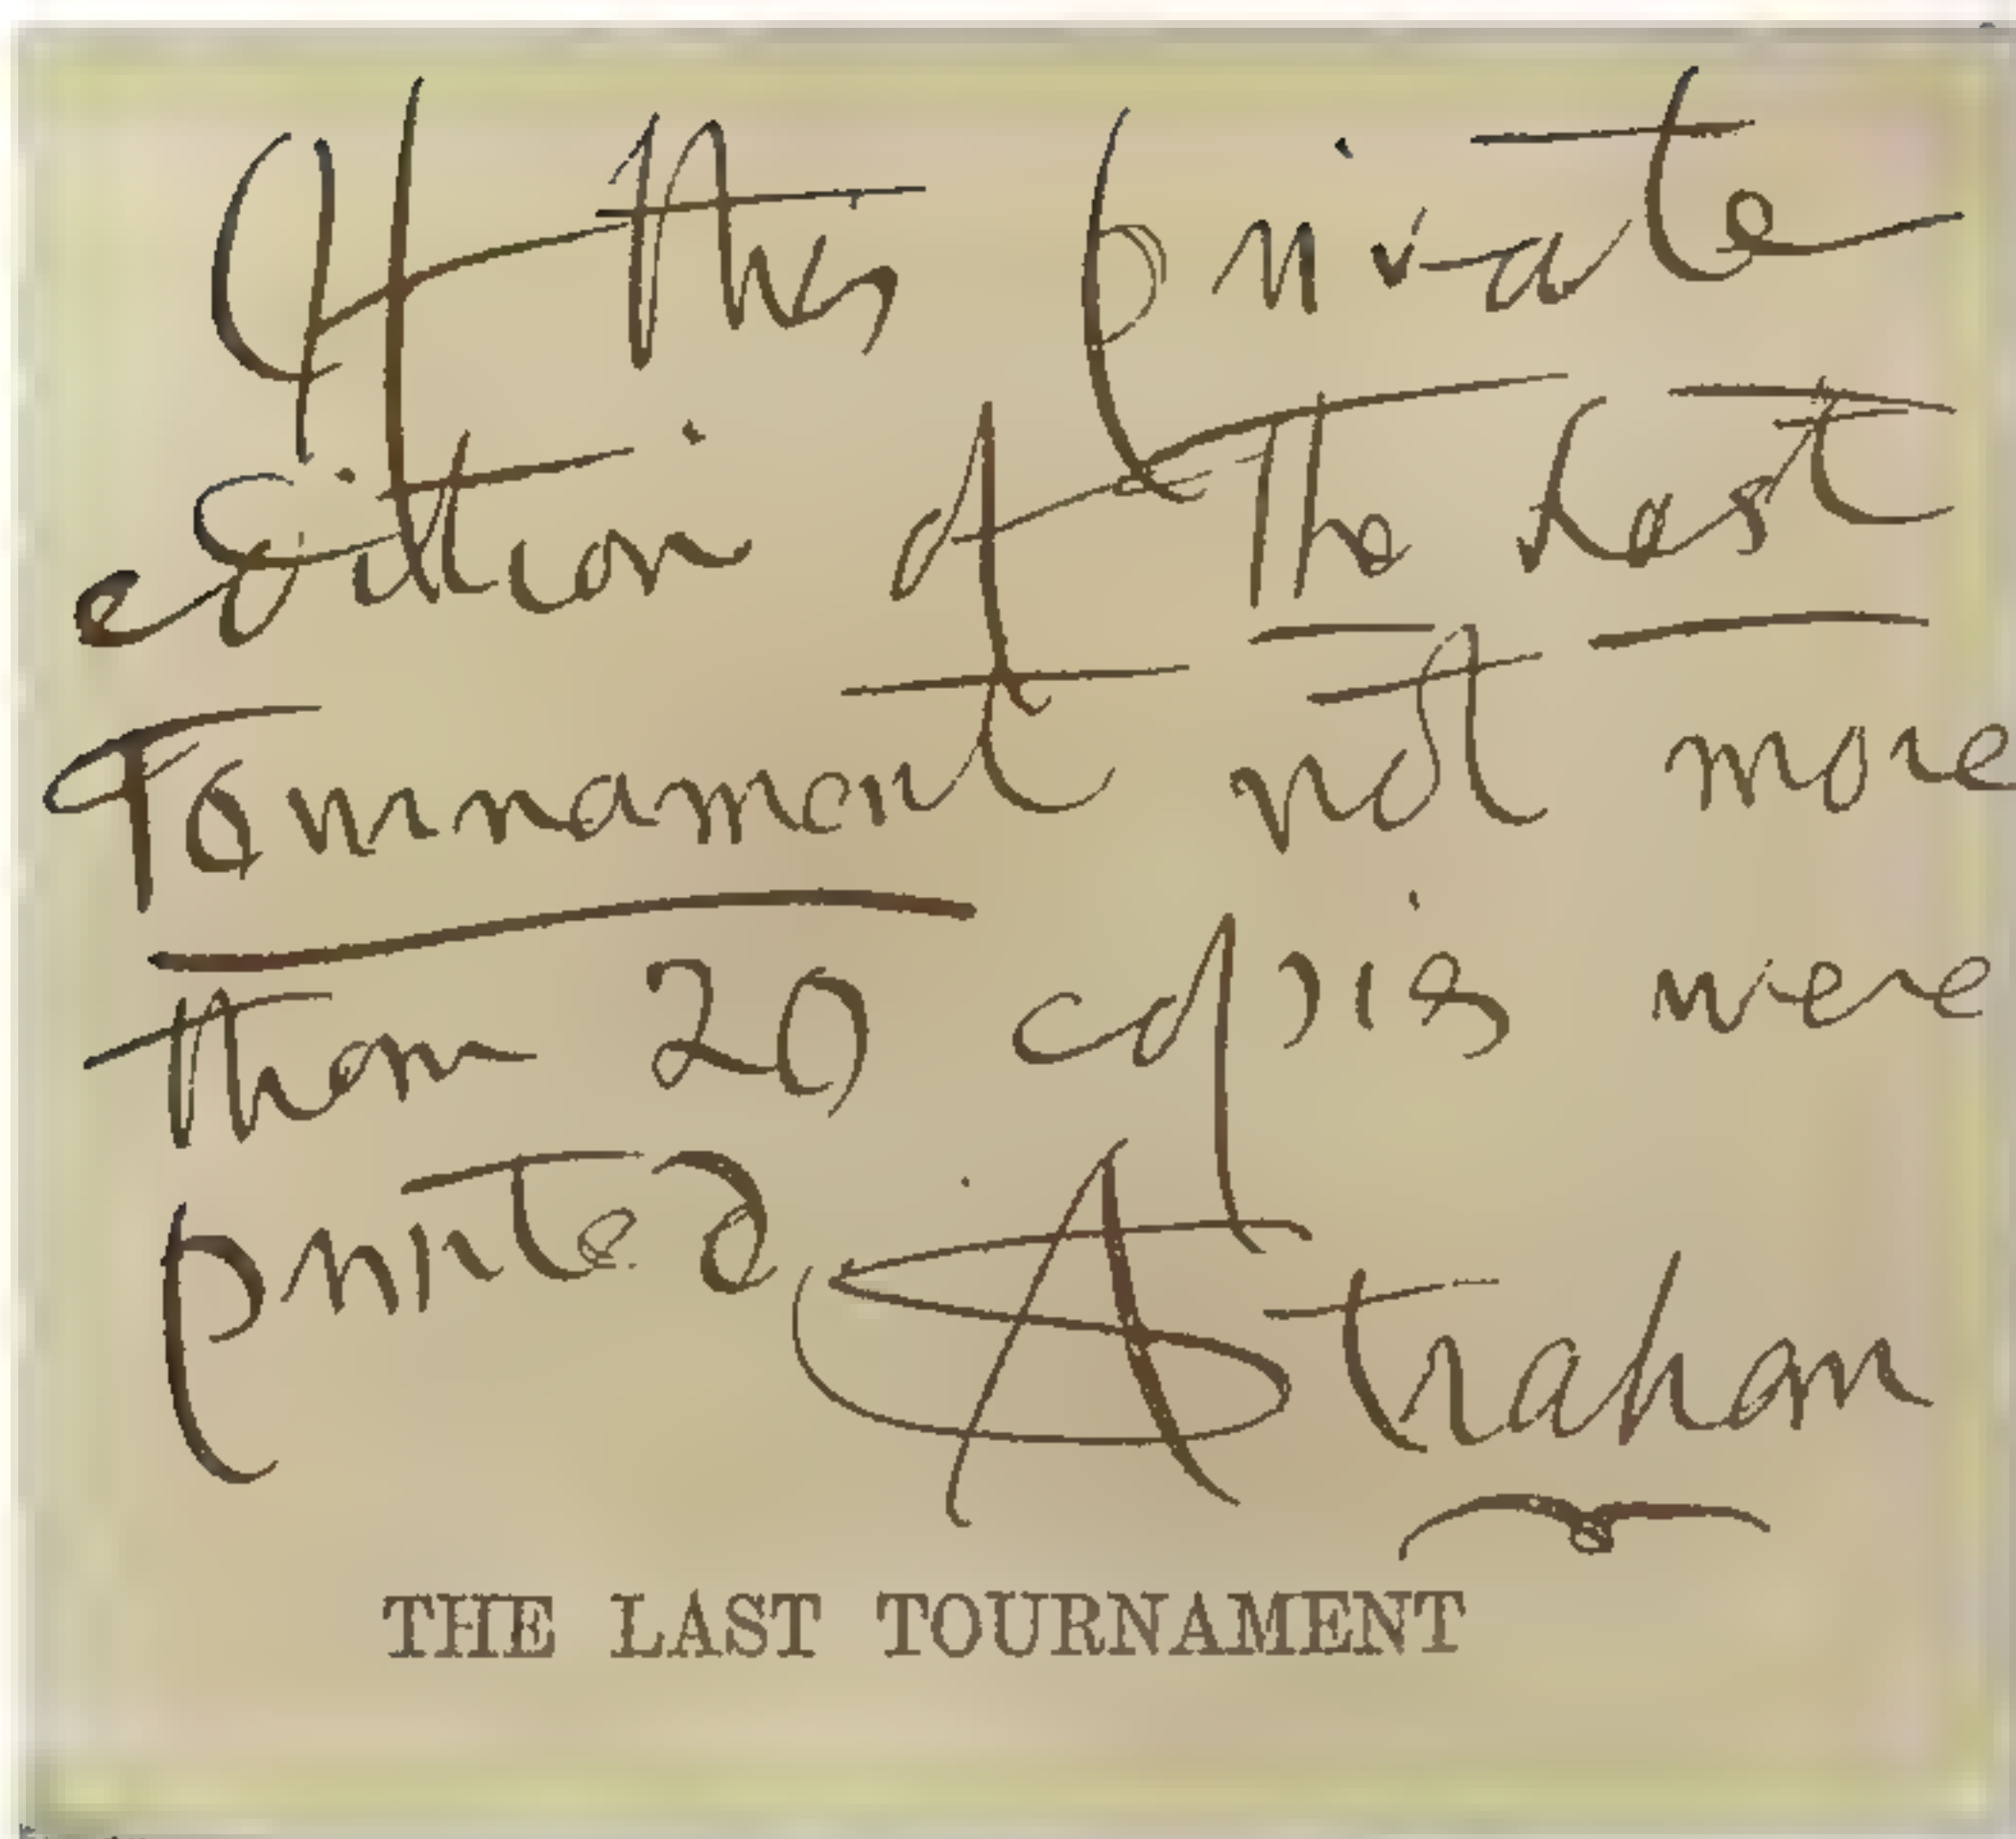 Of this private
edition of The Last
Tournament not more
than 20 copies were
printed AStrahan
THE LAST TOURNAMENT